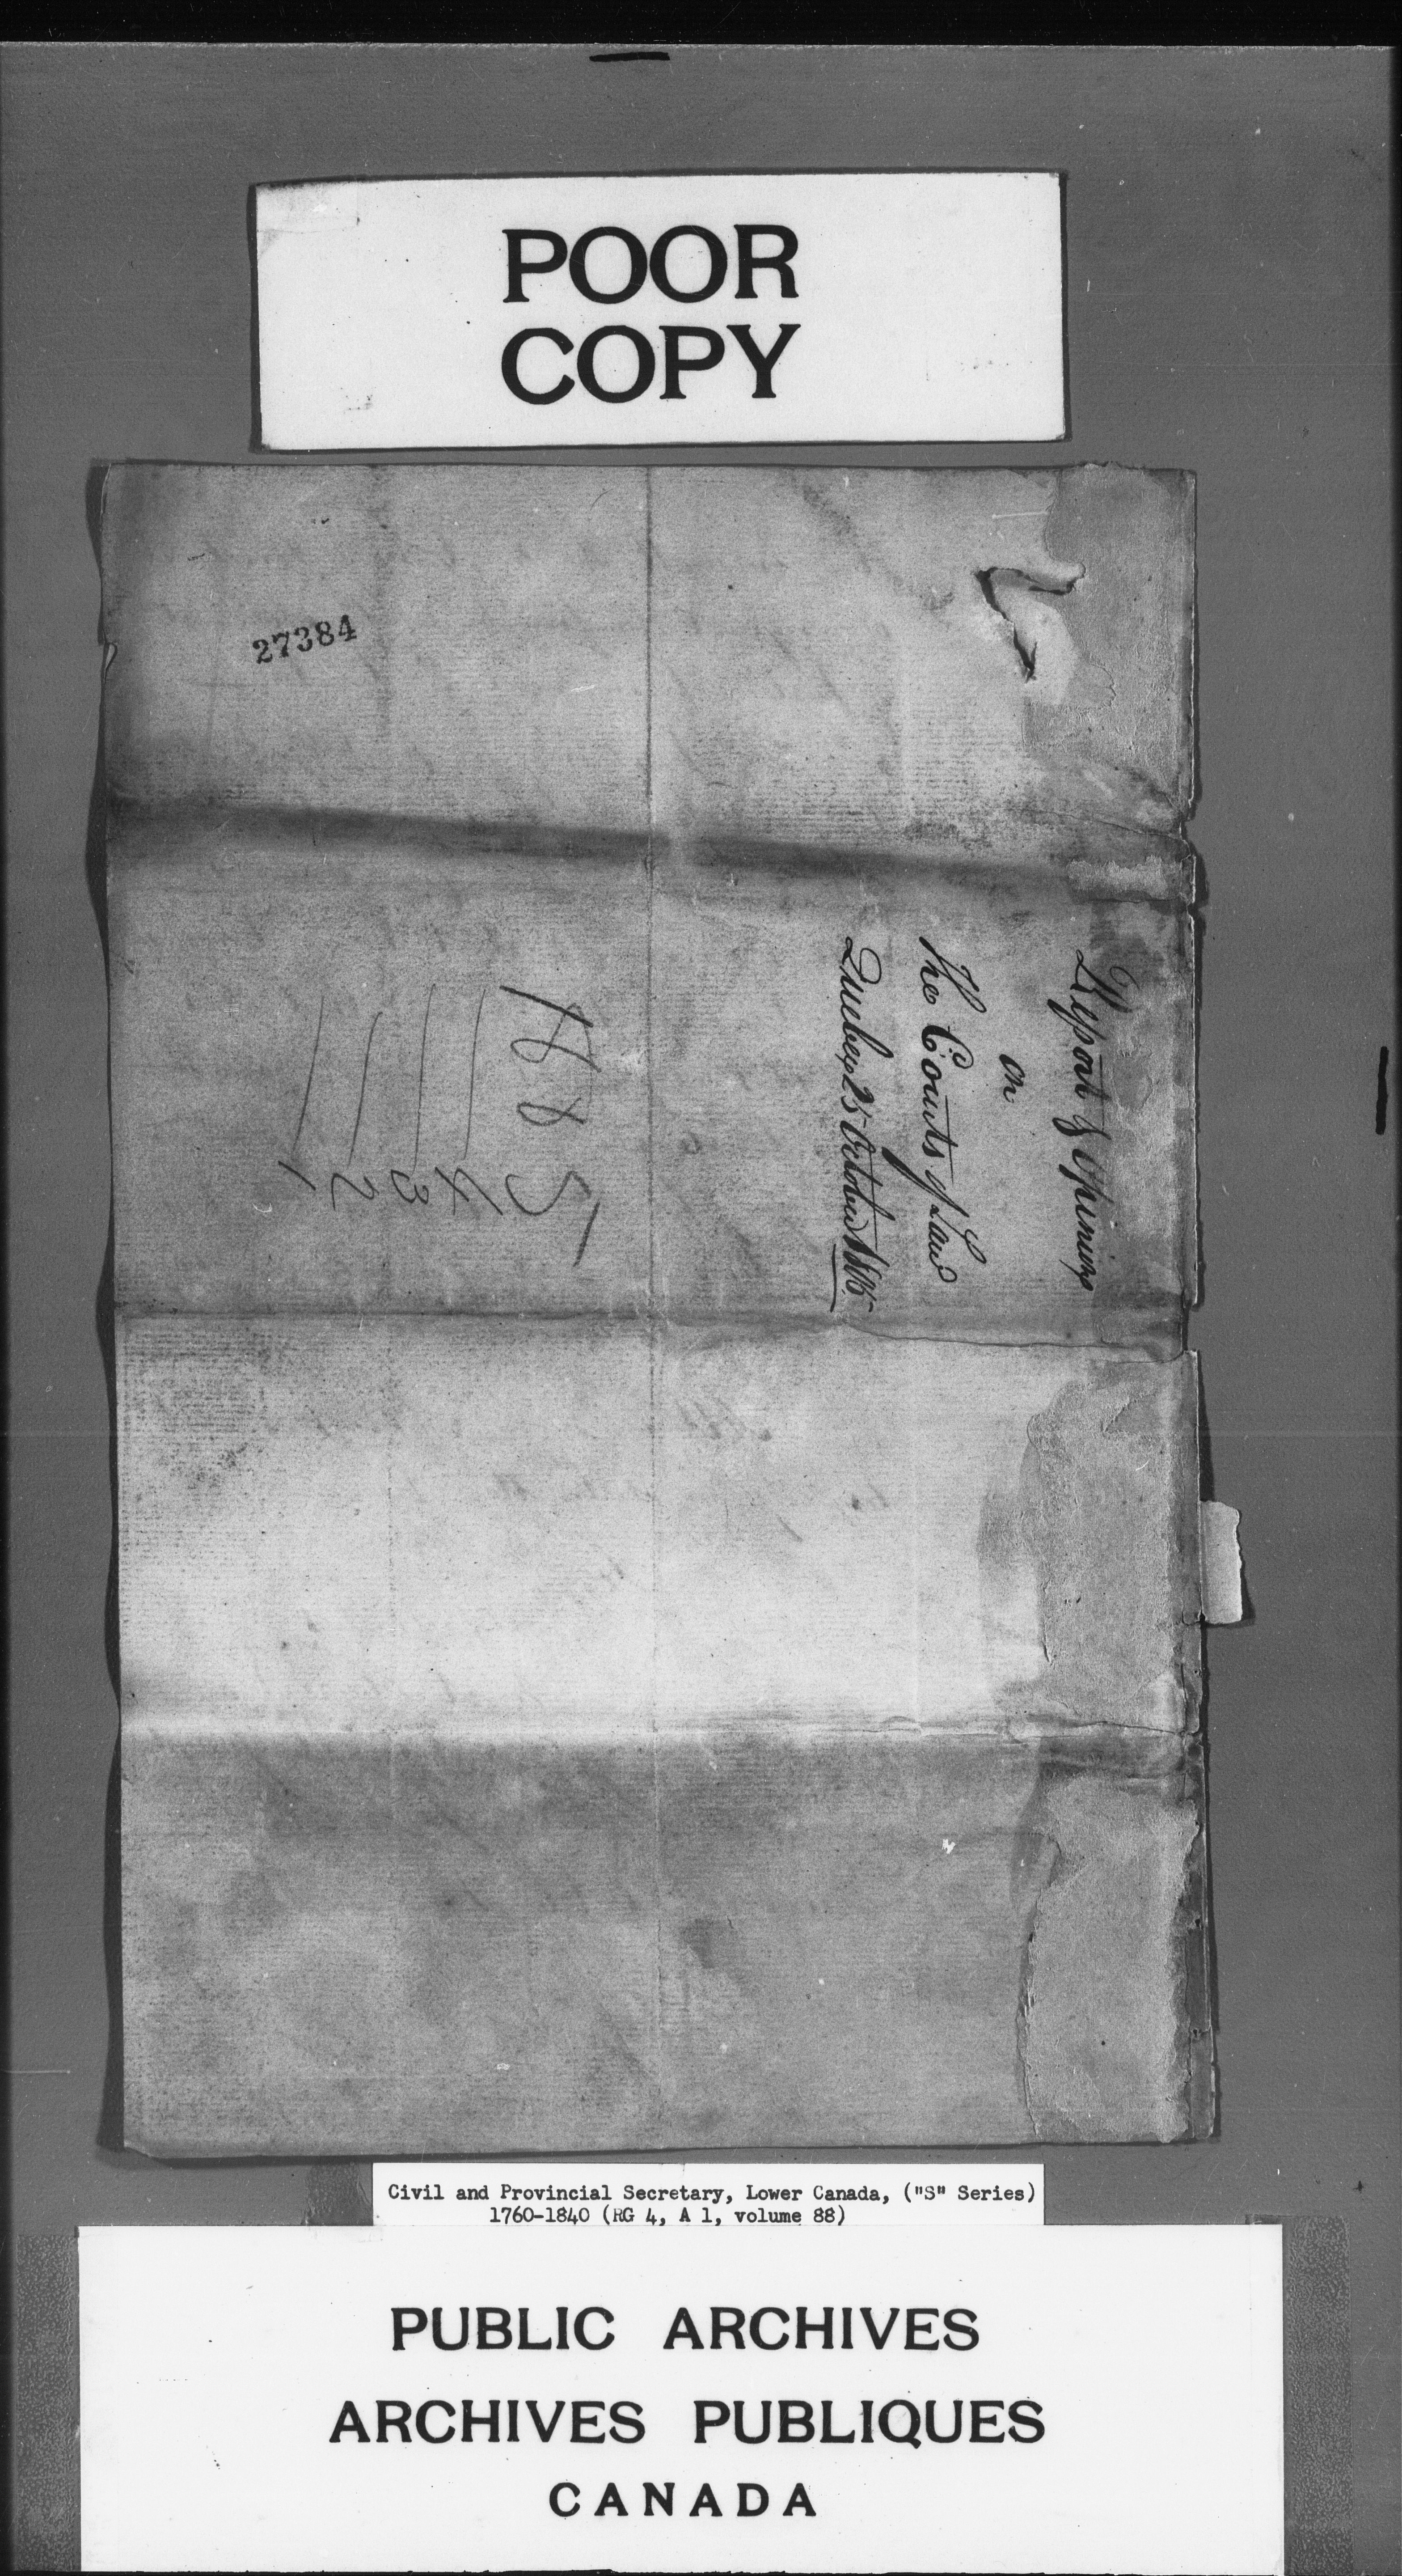 POOR
COPY
27384
Report & Opinions
on
The Courts of Law
Quebec 25 October
188 5
4
3
2
1
Civil and Provincial Secretary, Lower Canada, ("S" Series)
1760-1840 (RG 4, A 1, volume 88)
PUBLIC ARCHIVES
ARCHIVES PUBLIQUES
CANADA